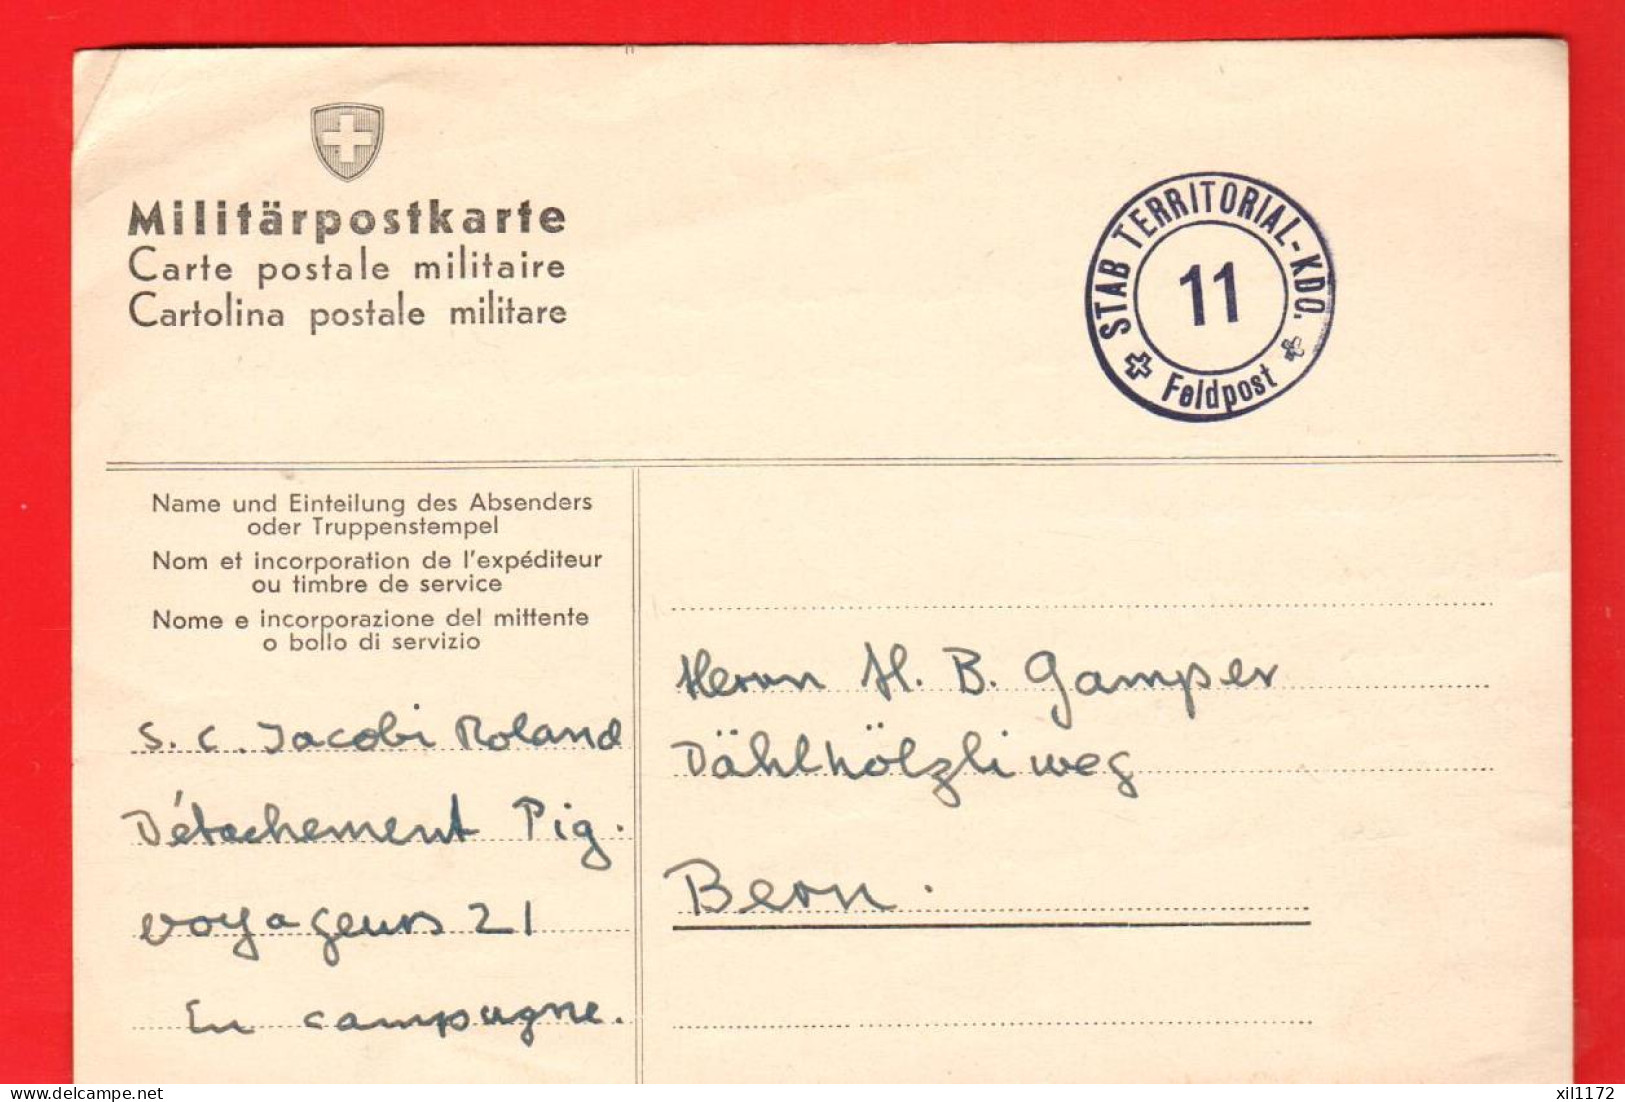 Militärpostkarte
Carte postale militaire
Cartolina postale militare
STAB TERRITORIAL-KDO.
11
Feldpost
Name und Einteilung des Absenders
oder Truppenstempel
Nom et incorporation de l'expéditeur
ou timbre de service
Nome e incorporazione del mittente
o bollo di servizio
S. C. Jacobi Roland
Détachement Pig.
voyageurs 21
En campagne.
Herrn H. B. Gamper
Dählhölzliweg
Bern.
delcampe.net
xil1172